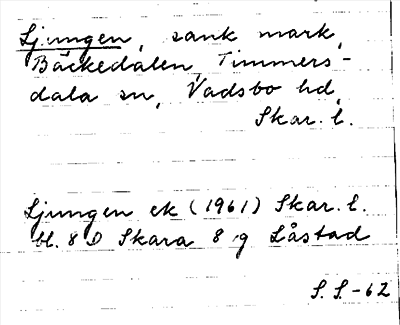 Ljungen, sank mark,
Bäckedalen, Timmers-
dala sn, Vadsbo hd,
Skar. l.
Ljungen ek (1961) Skar. l.
bl. 8 D Skara 8 g Låstad
S. S. -62